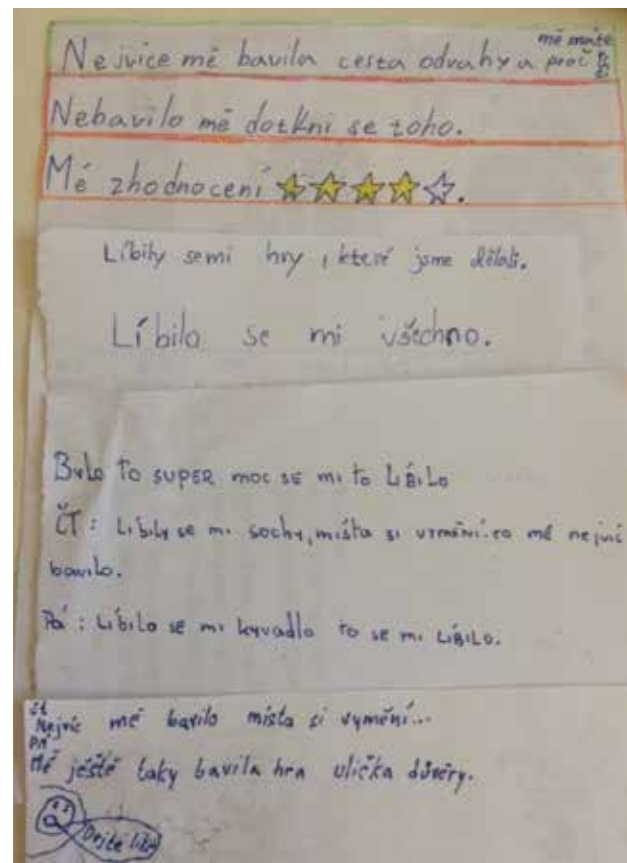 Nejvice mě bavila cesta odvahy a proč
mě máte
Nebavilo mě dotkni se toho.
Mé zhodnocení
Líbily semi hry, které jsme dělali.
Líbilo se mi všechno.
Bylo to SUPER moc SE mi to LÍBiLo
ČT: Líbily se mi sochy, místa si vymění.co mě nejvíc
bavilo.
Pá: Líbilo se mi kyvadlo to se mi LÍBILo.
čt
Nejvíc mě bavilo místa si vymění...
pá
Mě ještě taky bavila hra ulička důvěry.
Dejte like